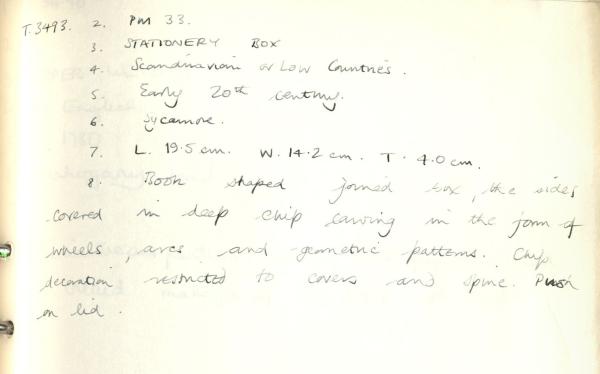 T.3493. 2. PM 33.
3. STATIONERY BOX
4. Scandinavian or Low Countries.
5. Early 20th century.
6. Sycamore.
7. L. 19.5 cm. W. 14.2 cm. T. 4.0 cm.
8. Book shaped joined box, the sides
covered in deep chip carving in the form of
wheels, arcs and geometric patterns. Chip
decoration restricted to covers and spine. Push
on lid.